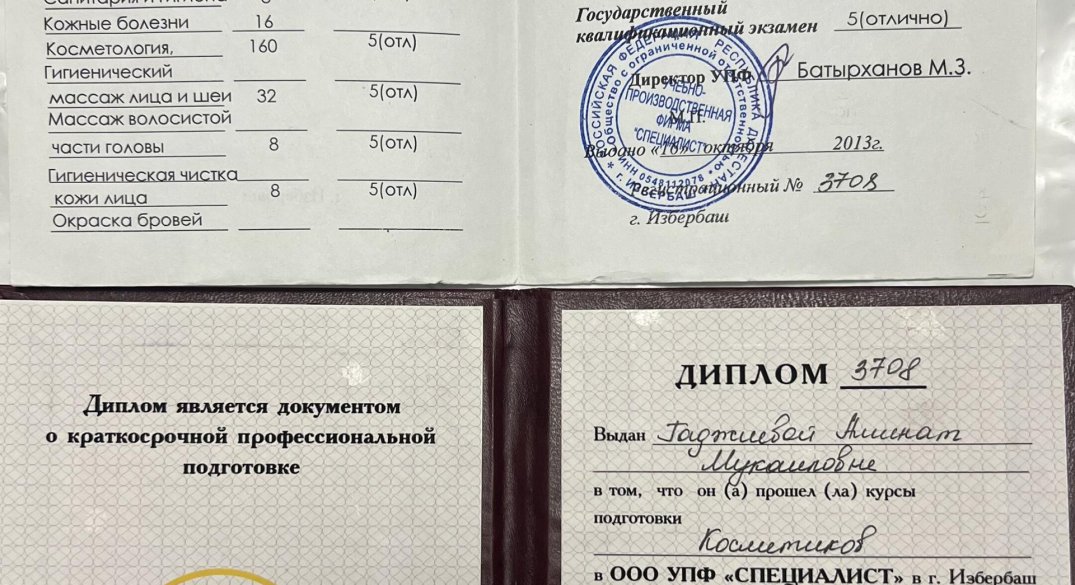 Санитария и гигиена
Кожные болезни 16
Косметология, 160 5(отл)
Гигиенический
массаж лица и шеи 32 5(отл)
Массаж волосистой
части головы 8 5(отл)
Гигиеническая чистка
кожи лица 8 5(отл)
Окраска бровей
Государственный
квалификационный экзамен 5(отлично)
Директор УПФ Батырханов М.З.
М.П.
Выдано «16» октября 2013г.
Регистрационный № 3708
г. Избербаш
РОССИЙСКАЯ ФЕДЕРАЦИЯ РЕСПУБЛИКА ДАГЕСТАН
Общество с ограниченной ответственностью
ИНН 0548112078
г. ИЗБЕРБАШ
УЧЕБНО-
ПРОИЗВОДСТВЕННАЯ
ФИРМА
"СПЕЦИАЛИСТ"
Диплом является документом
о краткосрочной профессиональной
подготовке
ДИПЛОМ 3708
Выдан Гаджиевой Аминат
Мукаиловне
в том, что он (а) прошел (ла) курсы
подготовки
Косметиков
в ООО УПФ «СПЕЦИАЛИСТ» в г. Избербаш